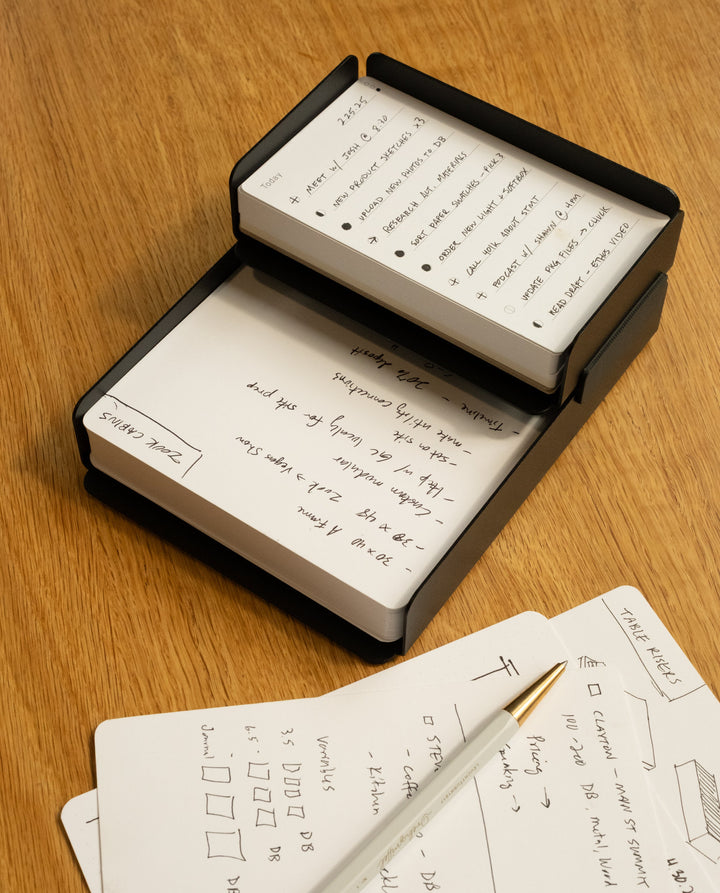 Today
2.25.25
+ MEET W/ JOSH @ 8:30
NEW PRODUCT SKETCHES x3
● UPLOAD NEW PHOTOS TO DB
→ RESEARCH ALT. MATERIALS
● SORT PAPER SWATCHES - PICK 3
● ORDER NEW LIGHT + SOFTBOX
+ CALL YORK ABOUT STMT
+ PODCAST W/ SHAWN @ 4PM
UPDATE PKG FILES → CHUCK
READ DRAFT - ETHOS VIDEO
ZOOK CABINS
- 30 x 40 A Frame
- 38 x 48 Zook → Vegas Show
- Custom modular
- Help w/ GC locally for site prep
- Set on site
- make utility connections
- Timeline
- 20% deposit
TABLE RISERS
4.30.2
CLAYTON - MAIN ST SUMMIT
100-200 DB, metal, Word
Pricing →
→
STEV
- Coffe
- Kitchen
- DB
Various
3.5 DB
6.5 DB
Journal